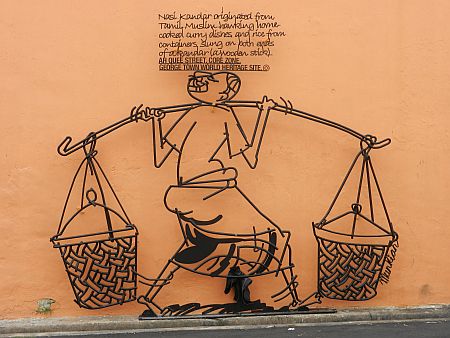 Nasi Kandar originated from
Tamil Muslim hawking home-
cooked curry dishes and rice from
containers slung on both ends
of a kandar (a wooden stick).
AH QUEE STREET, CORE ZONE,
GEORGE TOWN WORLD HERITAGE SITE. ©